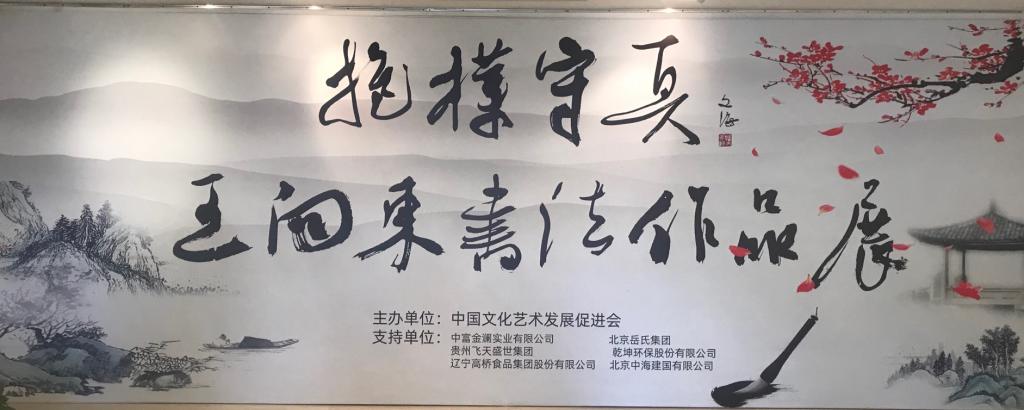 抱樸守真
文海
王向東書法作品展
主办单位：中国文化艺术发展促进会
支持单位：中富金澜实业有限公司 北京岳氏集团
贵州飞天盛世集团 乾坤环保股份有限公司
辽宁高桥食品集团股份有限公司 北京中海建国有限公司